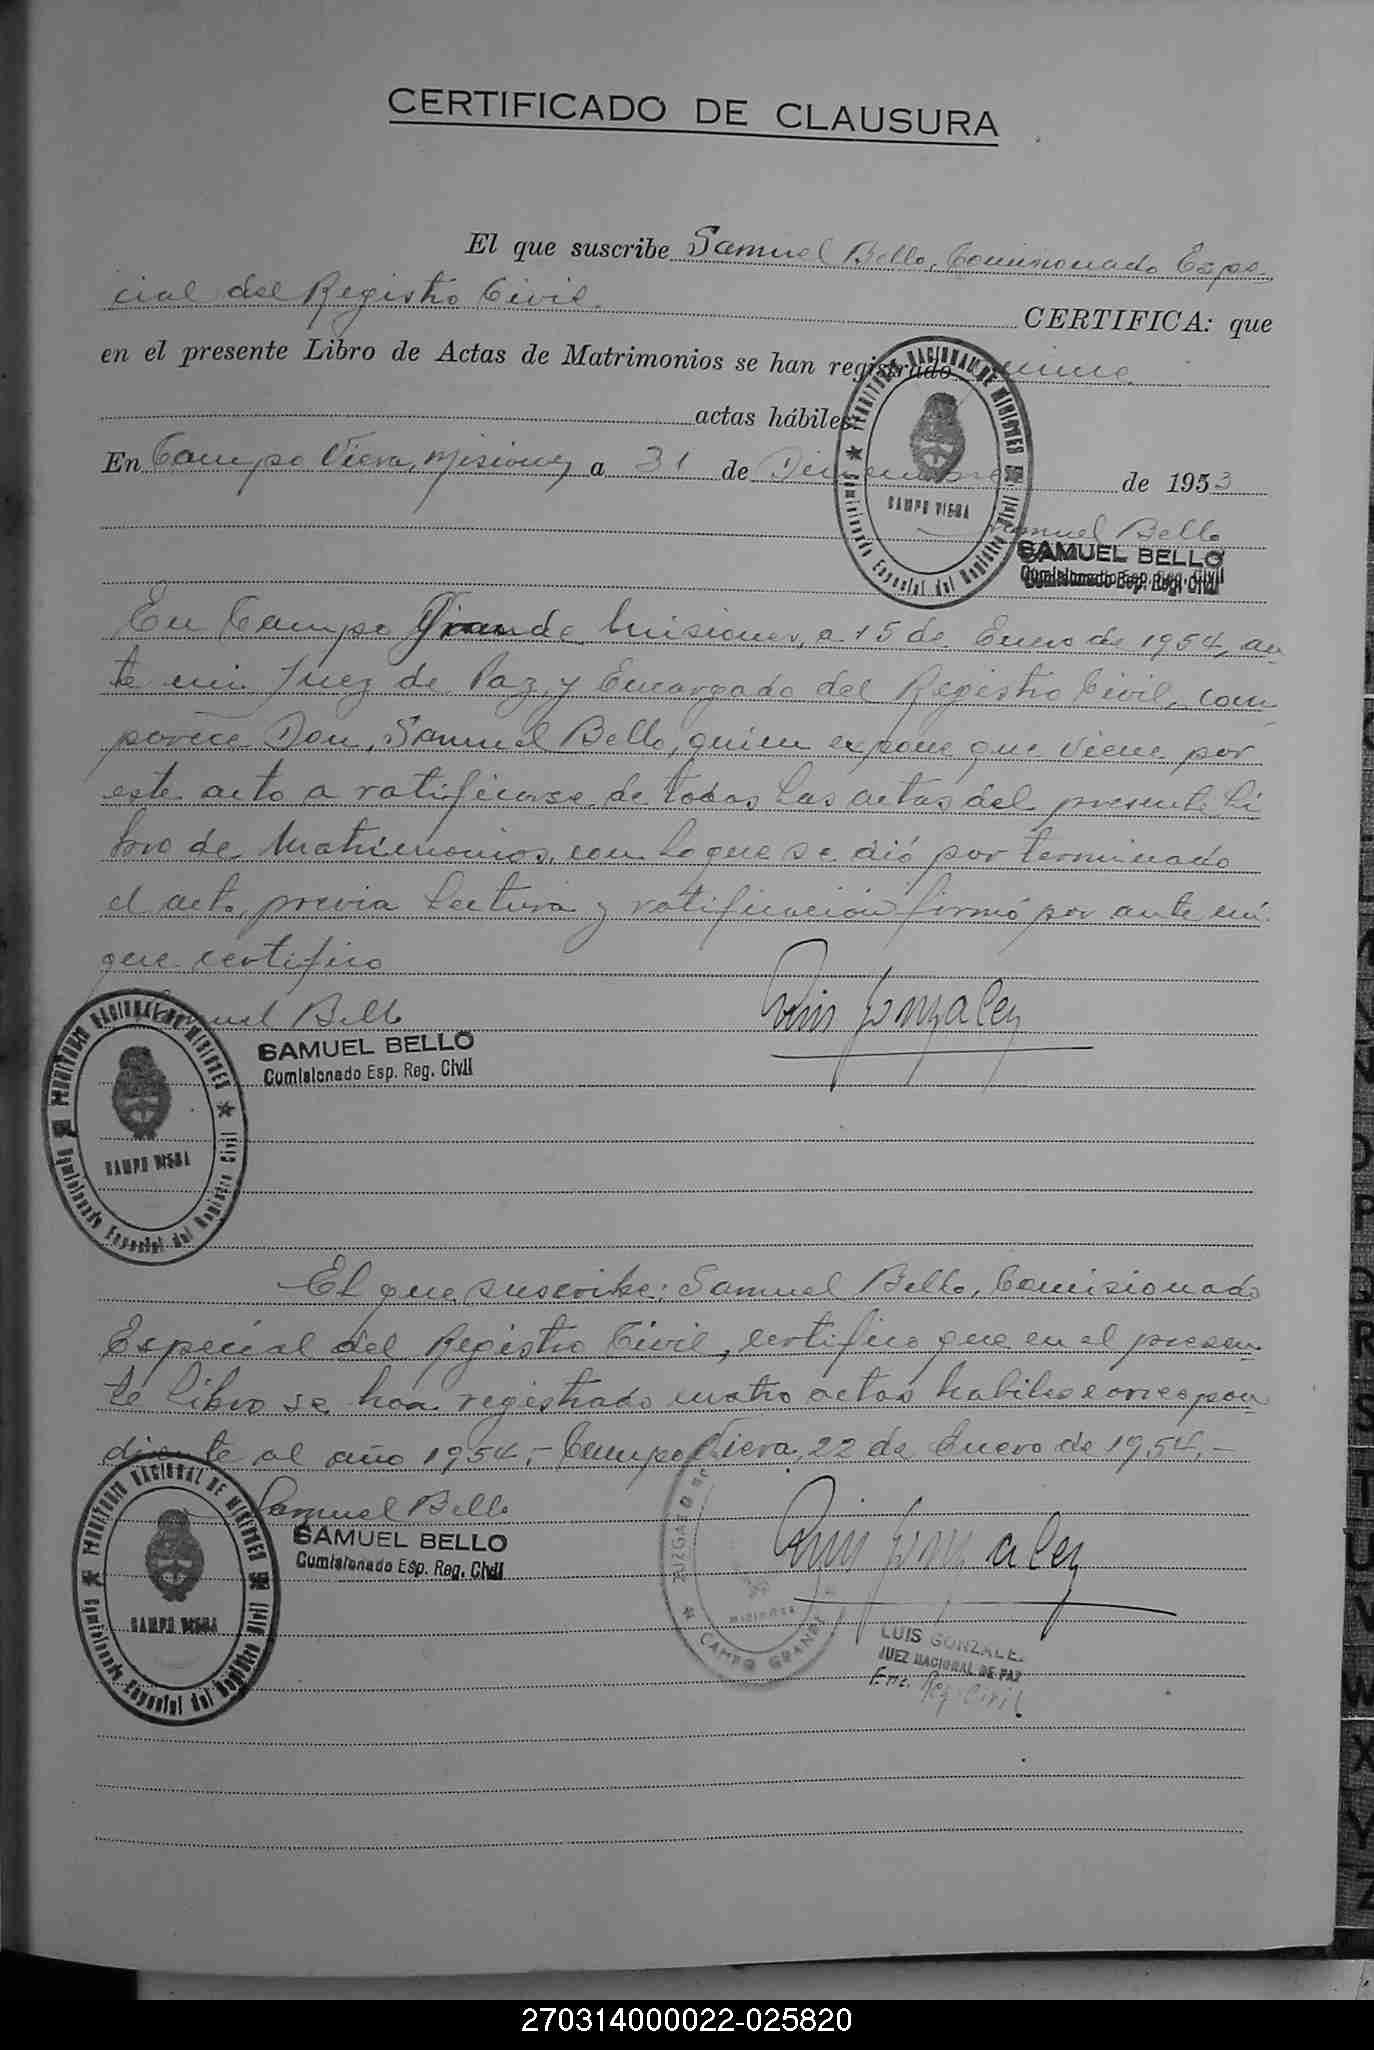 CERTIFICADO DE CLAUSURA
El que suscribe Samuel Bello, Comisionado Espe
cial del Registro Civil. CERTIFICA: que
en el presente Libro de Actas de Matrimonios se han registrado
actas hábiles.
En Campo Viera, Misiones a 31 de Diciembre de 1953
Samuel Bello
SAMUEL BELLO
Comisionado Esp. Reg. Civil
TERRITORIO NACIONAL DE MISIONES
CAMPO VIERA
Comisionado Especial del Registro Civil
En Campo Grande Misiones, a 15 de Enero de 1954, an
te mi Juez de Paz y Encargado del Registro Civil, com
parece Don, Samuel Bello, quien expone que viene por
este acto a ratificarse de todas las actas del presente Li
bro de Matrimonios, con lo que se dió por terminado
el acto, previa lectura y ratificación firmó por ante mi
que certifico
Samuel Bello
Luis Gonzalez
SAMUEL BELLO
Comisionado Esp. Reg. Civil
TERRITORIO NACIONAL DE MISIONES
CAMPO VIERA
Comisionado Especial del Registro Civil
El que suscribe: Samuel Bello, Comisionado
Especial del Registro Civil, certifico que en el presen
te libro se han registrado cuatro actas habiles correspon
diente al año 1954.- Campo Viera, 22 de Enero de 1954.-
Samuel Bello
Luis Gonzalez
SAMUEL BELLO
Comisionado Esp. Reg. Civil
TERRITORIO NACIONAL DE MISIONES
CAMPO VIERA
Comisionado Especial del Registro Civil
JUZGADO DE
MISIONES
CAMPO GRANDE
LUIS GONZALEZ
JUEZ NACIONAL DE PAZ
Enc. Reg. Civil
270314000022-025820